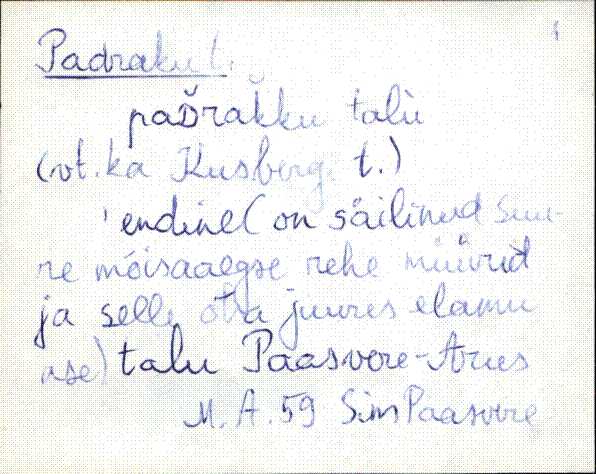 Padraku t.
paDrakku talù
(vt. ka Kusberg t.)
'endine (on säilinud suu-
re mõisaaegse rehe müürid
ja selle otsa juures elamu
ase) talu Paasvere-Arues
M. A. 59 Sim Paasvere